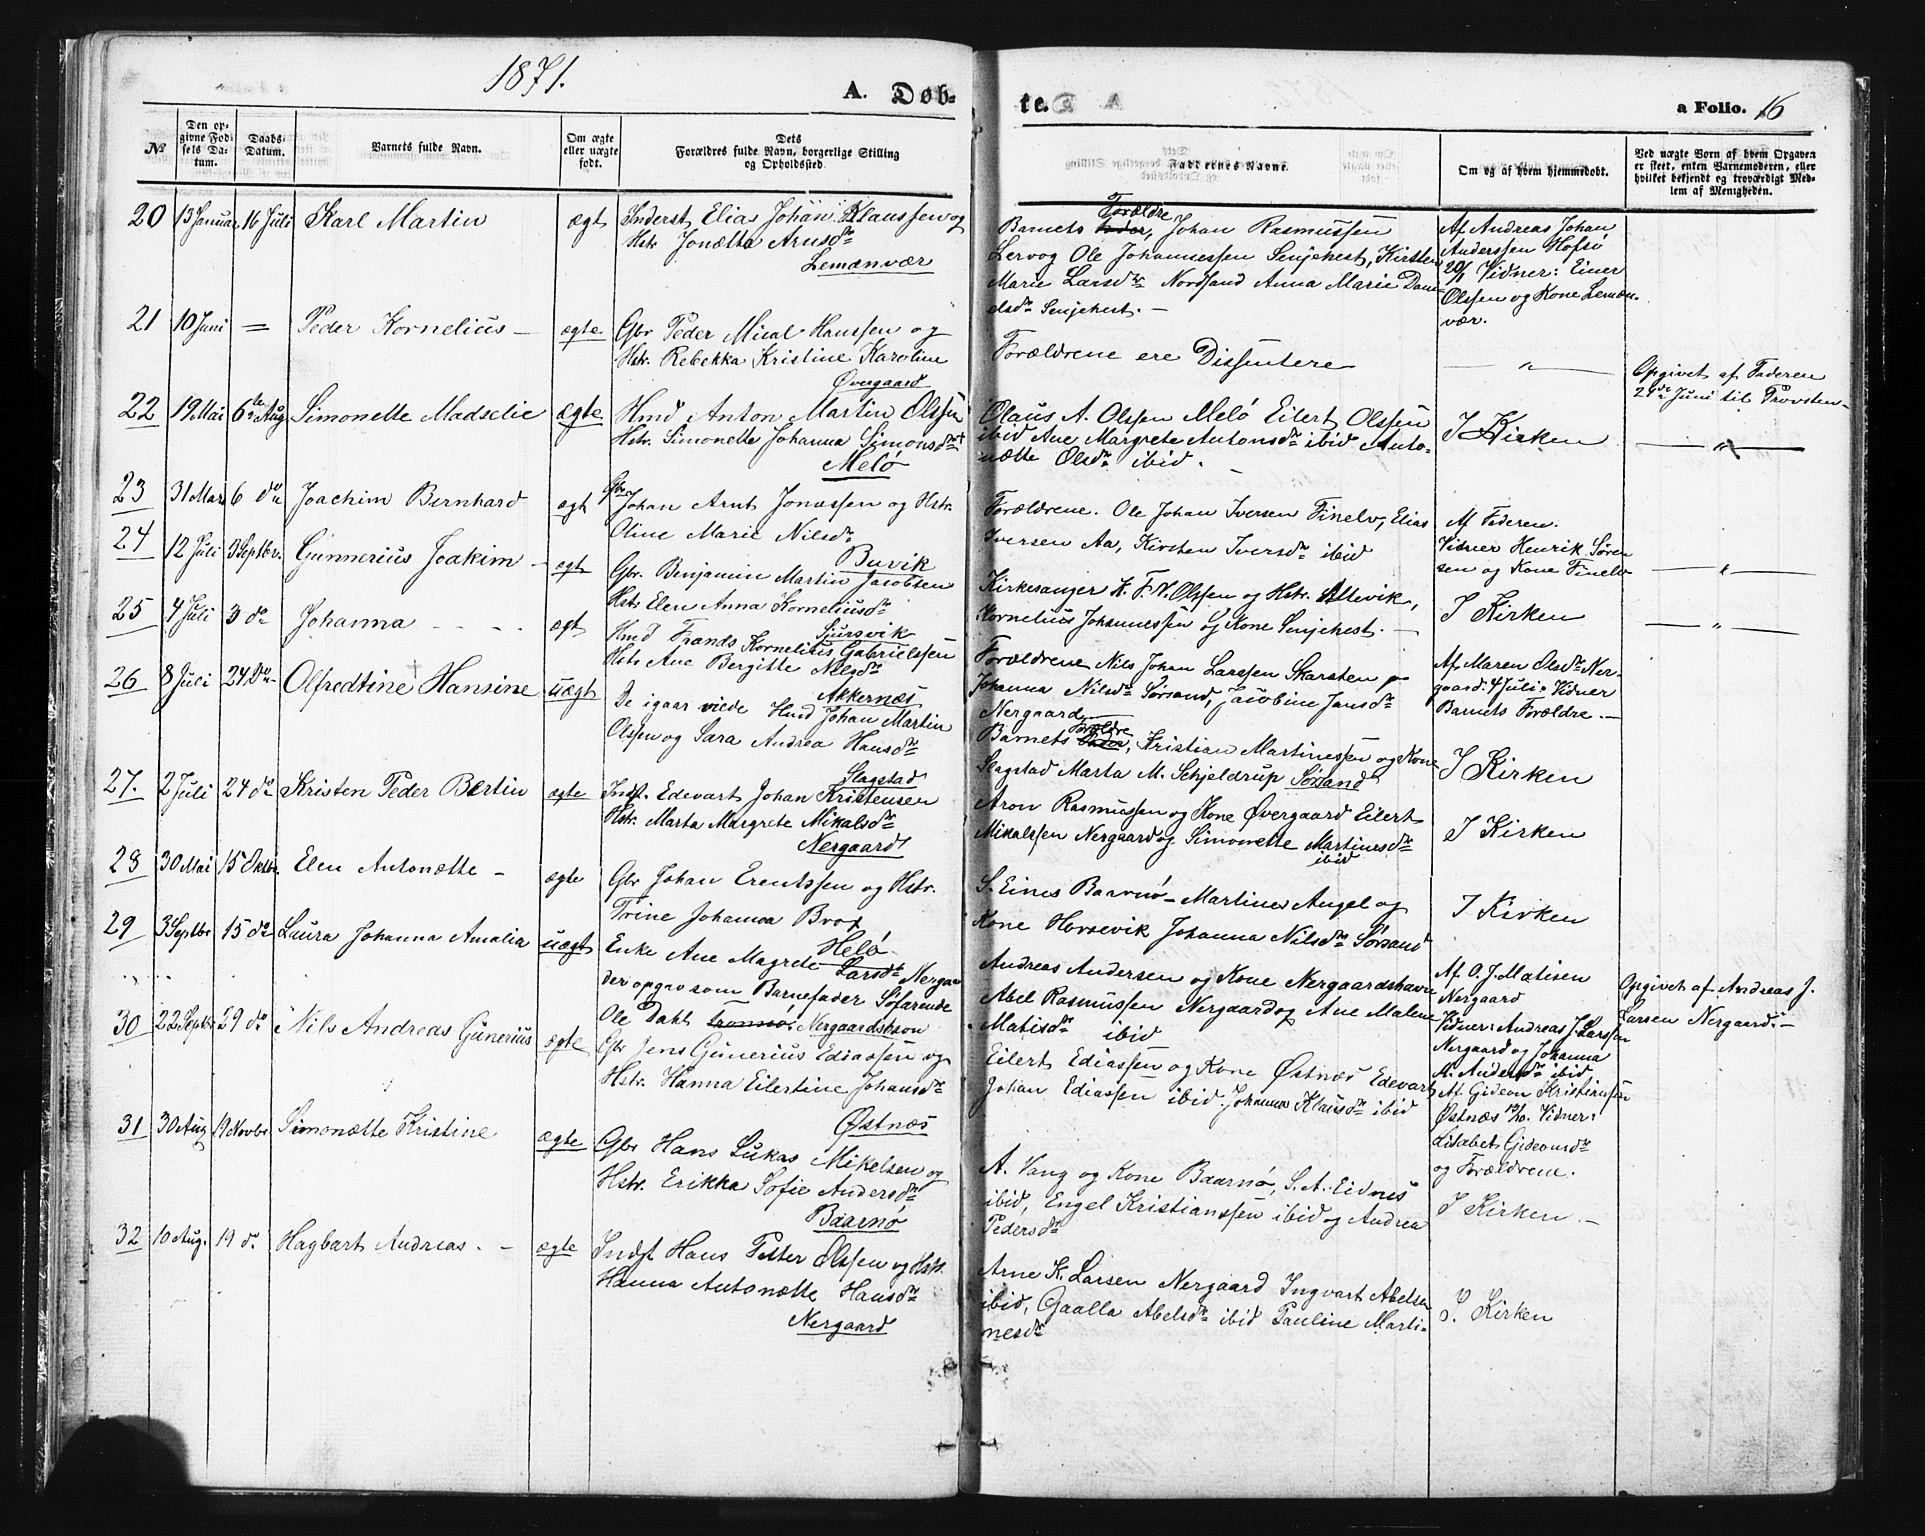 1871.
A. Døb-
te.
a Folio. 16
№
Den op-
givne Fød-
sels Da-
tum.
Daabs-
Datum.
Barnets fulde Navn.
Om ægte
eller uægte
født.
Dets
Forældres fulde Navn, borgerlige Stilling
og Opholdssted.
Faddernes Navne.
Om og af hvem hjemmedøbt.
Ved uægte Børn af hvem Opgaven
er skeet, enten Barnemoderen, eller
hvilket bekjendt og troværdigt Med-
lem af Menigheden.
20 13 Januar 16 Juli Karl Martin ægt
Inderst Elias Johan Klaussen og
Hstr Jonætta Arnsdr
Lemanvær
Forældre
Barnets Johan Rasmussen
Lervog Ole Johannessen Senjehest, Kirsten
Marie Larsdr Nordsand Anna Marie Dani-
elsdr Senjehest. —
Af Andreas Johan
Anderssen Hofsø
20/1 Vidner: Einer
Olssen og Kone Leman-
vær.
21 10 Juni = Peder Kornelius — ægte
Gbr Peder Mical Hanssen og
Hstr. Rebekka Kristine Karoline
Øvergaard
Forældrene ere Dissentere
— " —
Opgivet af Faderen
29de Juni til Provsten
22 19 Mai 6te Aug Simonette Madselie ægte
Hmd Anton Martin Olssen
Hstr. Simonette Johanna Simonsdr
Melø
Olaus A. Olssen Melö Eilert Olssen
ibid Ane Margrete Antonsdr ibid Anto-
nætte Olsdr ibid. —
I Kirken
— " —
23 31 Mar 6 do Joachim Bernhard ægt
Gbr
Johan Arnt Jonassen og Hstr.
Oline Marie Nilsdr
Buvik
Forældrene. Ole Johan Iversen Finelv, Elias
Iversen Aa, Kirsten Iversdr ibid
Af Faderen.
Vidner Henrik Søren
sen og Kone Finelv
— " —
24 12 Juli 3 Septbr. Gunnerius Joakim — ægt
Gbr. Benjamin Martin Jacobsen
Hstr Elen Anna Korneliusdr
Sjursvik
Kirkesanger K. F. N. Olssen og Hstr. Altevik,
Kornelius Johannessen og Kone Senjehest. —
I Kirken
— " —
25 4 Juli 3 do Johanna - - - - ægt
Hmd Frands Kornelius Gabrielssen
Hstr Ane Bergitte Nilsdr
Akkernæs
Forældrene Nils Johan Larssen Skarsten
Johanna Nilsdr Sørsand, Jacobine Jansdr
Nergaard
Af Maren Olsdr Ner-
gaard. 4 Juli. Vidner
Barnets Forældre. —
26 8 Juli 24 do Olfredtine Hansine uægt
De igaar viede Hmd Johan Martin
Olssen og Sara Andrea Hansdr
Slagstad
Forældre
Barnets Kristian Martinessen og Kone
Slagstad Marta M. Schjeldrup Sørsand
I Kirken
27. 2 Juli 24 do Kristen Peder Bertin ægte
Indst. Edevart Johan Kristensen
Hstr. Marta Margrete Mikalsdr
Nergaard
Aron Rasmussen og Kone Øvergaard Eilert
Mikalssen Nergaard og Simonette Martinesdr
ibid
I Kirken
28 30 Mai 15 Oktbr. Elen Antonætte — ægte
Gbr Johan Erentssen og Hstr.
Trine Johanna Brox
Helø
S. Eines Baarnø — Martines Angel og
Kone Horsevik Johanna Nilsdr Sørsand
I Kirken
29 3 Septbr 15 do Laura Johanna Amalia uægt
Enke Ane Magrete Larsdr Nergaar
der opgav som Barnefader Søfarende
Ole Dahl Tromsø. Nergaardshavn
Andreas Andersen og Kone Nergaardshavn
Abel Rasmussen Nergaard og Ane Malene
Matisdr ibid
Af O. J. Matisen
Nergaard
Vidner: Andreas J. Larssen
Nergaard og Johanna
M. Andersdr ibid
Opgivet af Andreas J.
Larsen Nergaard. —
30 22 Septbr 29 do Nils Andreas Gunerius ægte
Gbr Jens Gunerius Ediassen og
Hstr. Hanna Eilertine Johansdr
Østnæs
Eilert Ediassen og Kone Østnæs Edevart
Johan Ediassen ibid. Johanna Klausdr ibid
Af. Gideon Kristiansen
Østnæs Vidner:
Lisabet Gideonsdr
og Forældrene.
31 30 Aug 19 Novbr Simonætte Kristine ægte
Gbr Hans Lukas Mikelsen og
Hstr. Erikka Sofie Andersdr
Baarnø
A. Vang og Kone Baarnø, S. A. Eidnes
ibid, Engel Kristianssen ibid og Andrea
Pedersdr
I Kirken. —
32 10 Aug. 19 do Hagbart Andreas. — ægte
Indst Hans Petter Olssen og Hstr.
Hanna Antonætte Hansdr
Nergaard
Arne K. Larsen Nergaard Ingvart Abelsen
ibid, Gaalla Abelsdr ibid Pauline Marti-
nesdr
I. Kirken